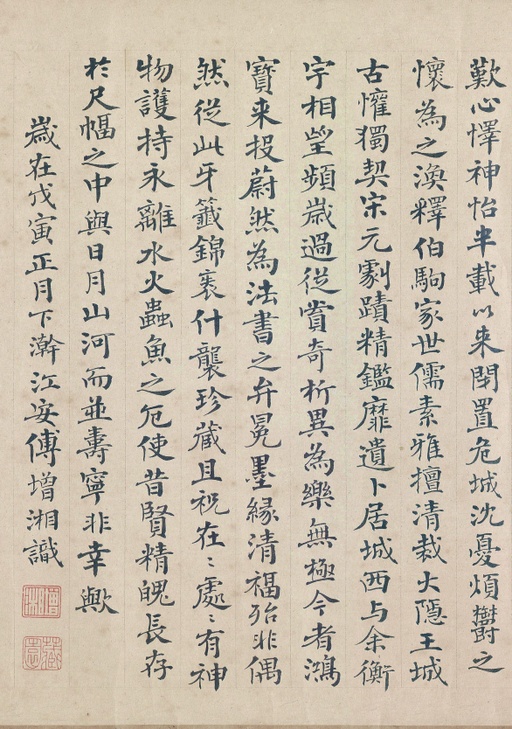 歎心懌神怡半載以來閉置危城沈憂煩鬱之
懷為之渙釋伯駒家世儒素雅擅清裁大隱王城
古懽獨契宋元劇蹟精鑑靡遺卜居城西与余衡
宇相望頻歲過從賞奇析異為樂無極今者鴻
寶來投蔚然為法書之弁冕墨緣清福殆非偶
然從此牙籤錦裹什襲珍藏且祝在〻處〻有神
物護持永離水火蟲魚之厄使昔賢精魄長存
於尺幅之中與日月山河而並壽寧非幸歟
歲在戊寅正月下澣江安傅增湘識
增湘